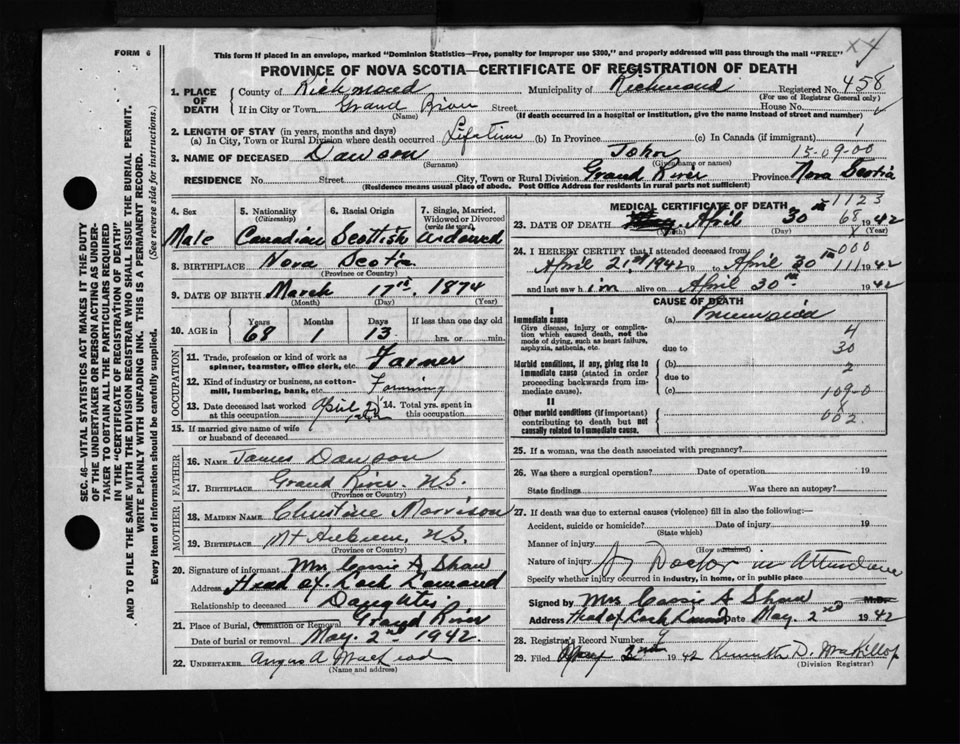 FORM 6
This form if placed in an envelope, marked "Dominion Statistics—Free, penalty for improper use $300," and properly addressed will pass through the mail "FREE"
PROVINCE OF NOVA SCOTIA—CERTIFICATE OF REGISTRATION OF DEATH
SEC. 46—VITAL STATISTICS ACT MAKES IT THE DUTY
OF THE UNDERTAKER OR PERSON ACTING AS UNDER-
TAKER TO OBTAIN ALL THE PARTICULARS REQUIRED
IN THE "CERTIFICATE OF REGISTRATION OF DEATH"
AND TO FILE THE SAME WITH THE DIVISION REGISTRAR WHO SHALL ISSUE THE BURIAL PERMIT.
WRITE PLAINLY WITH UNFADING INK. THIS IS A PERMANENT RECORD.
Every item of information should be carefully supplied. (See reverse side for instructions.)
1. PLACE OF DEATH County of Richmond Municipality of Richmond Registered No. 458
(For use of Registrar General only)
If in City or Town Grand River Street House No.
(Name) (If death occurred in a hospital or institution, give the name instead of street and number)
2. LENGTH OF STAY (in years, months and days)
(a) In City, Town or Rural Division where death occurred Lifetime (b) In Province (c) In Canada (if immigrant) 1
3. NAME OF DECEASED Dawson John 15-09-00
(Surname) (Given name or names)
RESIDENCE No. Street City, Town or Rural Division Grand River Province Nova Scotia
(Residence means usual place of abode. Post Office Address for residents in rural parts not sufficient)
4. Sex 5. Nationality (Citizenship) 6. Racial Origin 7. Single, Married, Widowed or Divorced (write the word)
Male Canadian Scottish Widowed
8. BIRTHPLACE Nova Scotia
(Province or Country)
9. DATE OF BIRTH March 17th 1874
(Month) (Day) (Year)
10. AGE in Years Months Days If less than one day old
68 1 13 hrs. or min.
OCCUPATION
11. Trade, profession or kind of work as spinner, teamster, office clerk, etc. Farmer
12. Kind of industry or business, as cotton-mill, lumbering, bank, etc. Farming
13. Date deceased last worked at this occupation April 14. Total yrs. spent in this occupation
15. If married give name of wife or husband of deceased
FATHER
16. NAME James Dawson
17. BIRTHPLACE Grand River N.S.
(Province or Country)
MOTHER
18. MAIDEN NAME Christine Morrison
19. BIRTHPLACE Mt N.S.
(Province or Country)
20. Signature of informant Mrs Cassie A Shaw
Address Head of Loch Lomond
Relationship to deceased Daughter
21. Place of Burial, Cremation or Removal Grand River
Date of burial or removal May 2nd 1942.
22. UNDERTAKER Angus A MacLeod
MEDICAL CERTIFICATE OF DEATH 1123
23. DATE OF DEATH April 30th 1942
68
(Month) (Day) (Year)
24. I HEREBY CERTIFY that I attended deceased from 000
April 21st 1942 to April 30th 1942
111
and last saw him alive on April 30th 1942
CAUSE OF DEATH
I
Immediate cause (a) Pneumonia
Give disease, injury or complication which caused death, not the mode of dying, such as heart failure, asphyxia, asthenia, etc.
4
due to 30
Morbid conditions, if any, giving rise to immediate cause (stated in order proceeding backwards from immediate cause). (b) 2
due to
(c) 109-0
II
Other morbid conditions (if important) contributing to death but not causally related to immediate cause. 002
25. If a woman, was the death associated with pregnancy?
26. Was there a surgical operation? Date of operation 19
State findings Was there an autopsy?
27. If death was due to external causes (violence) fill in also the following:—
Accident, suicide or homicide? Date of injury 19
(State which)
Manner of injury
(How sustained)
Nature of injury No Doctor in Attendance
Specify whether injury occurred in industry, in home, or in public place
Signed by Mrs Cassie A Shaw M.D.
Address Head of Loch Lomond Date May 2nd 1942
28. Registrar's Record Number 9
29. Filed May 2nd 1942 Kenneth D. MacKillop
(Division Registrar)